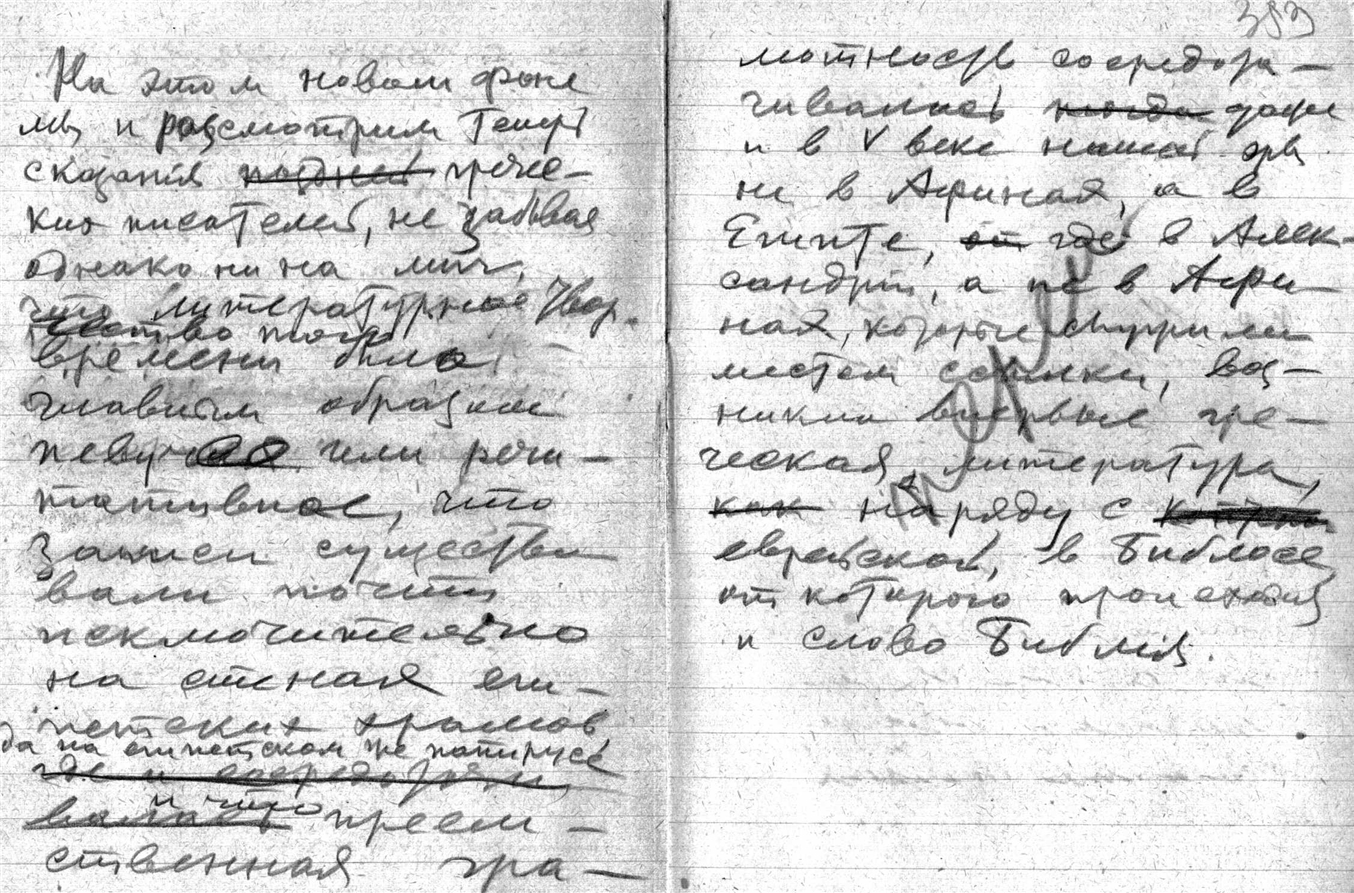 На этом новом фоне
мы и рассмотрим теперь
сказания поздней грече-
ких писателей, не забывая
однако ни на миг,
что литературное твор-
чество того
времени было
главным образом
певучее или речи-
тативное, что
записи существо
вали почти
исключительно
на стенах еги-
петских храмов
да на египетском же папирусе
где и сосредотачи
валась и что преем-
ственная гра-
383
мотность сосредота-
чивалась тогда даже
и в V веке нашей эры
не в Афинах, а в
Египте, от где в Алек-
сандрии, а не в Афи-
нах, которые служили
местом ссылки, воз-
никла впервые гре-
ческая литература,
как наряду с
еврейской, в Библосе,
от которого происходит
и слово Библия.